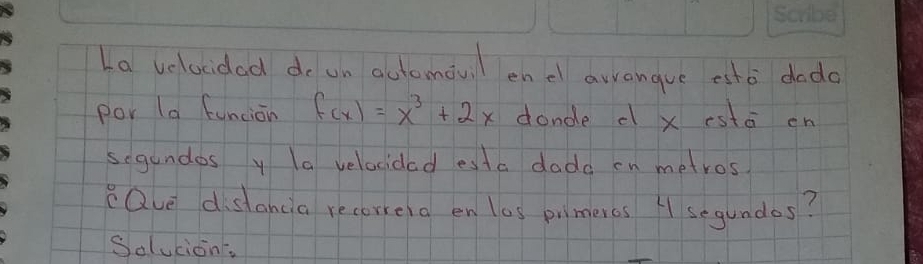 Scribe
La velocidad de un automóvil en el arranque está dada
por la función f(x) = x³ + 2x donde el x está en
segundos y la velocidad esta dada en metros.
¿Qué distancia recorrera en los primeros 4 segundos?
Solución: